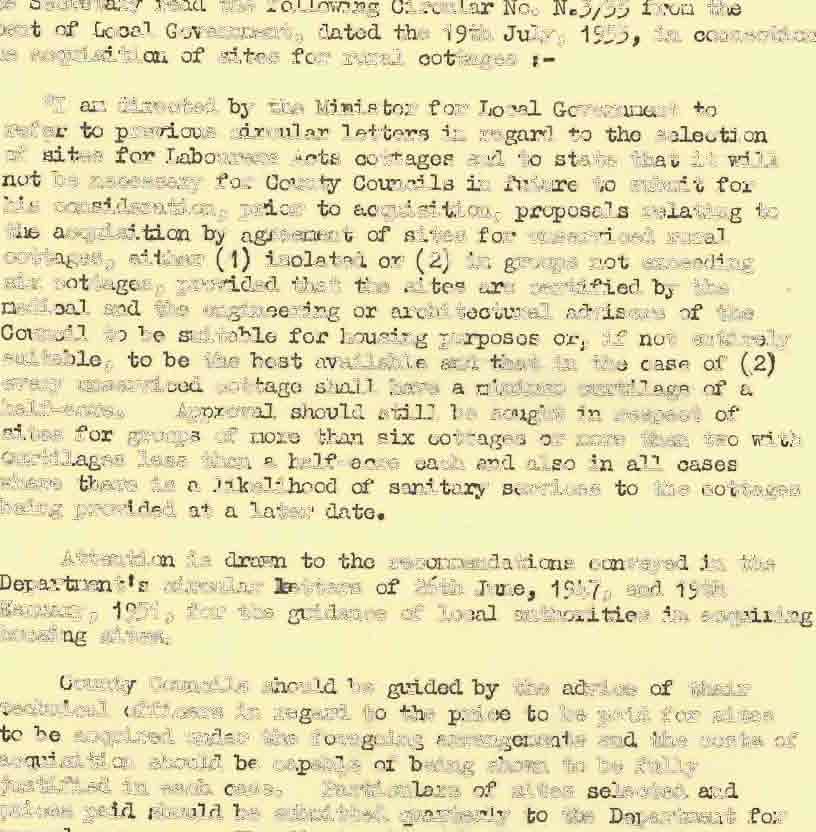 Secretary read the following Circular No. N.3/55 from the
of Local Government, dated the 19th July, 1955, in connection
acquisition of sites for rural cottages :-
"I am directed by the Minister for Local Government to
refer to previous circular letters in regard to the selection
of sites for Labourers Acts cottages and to state that it will
not be necessary for County Councils in future to submit for
his consideration, prior to acquisition, proposals relating to
the acquisition by agreement of sites for unserviced rural
cottages, either (1) isolated or (2) in groups not exceeding
six cottages, provided that the sites are certified by the
medical and the engineering or architectural advisers of the
Council to be suitable for housing purposes or, if not entirely
suitable, to be the best available and that in the case of (2)
every unserviced cottage shall have a minimum curtilage of a
half-acre. Approval should still be sought in respect of
sites for groups of more than six cottages or more than two with
curtilages less than a half-acre each and also in all cases
where there is a likelihood of sanitary services to the cottages
being provided at a later date.
Attention is drawn to the recommendations conveyed in the
Department's circular letters of 26th June, 1947, and 19th
January, 1951, for the guidance of local authorities in acquiring
housing sites.
County Councils should be guided by the advice of their
technical officers in regard to the price to be paid for sites
to be acquired under the foregoing arrangements and the costs of
acquisition should be capable of being shown to be fully
justified in each case. Particulars of sites selected and
prices paid should be submitted quarterly to the Department for